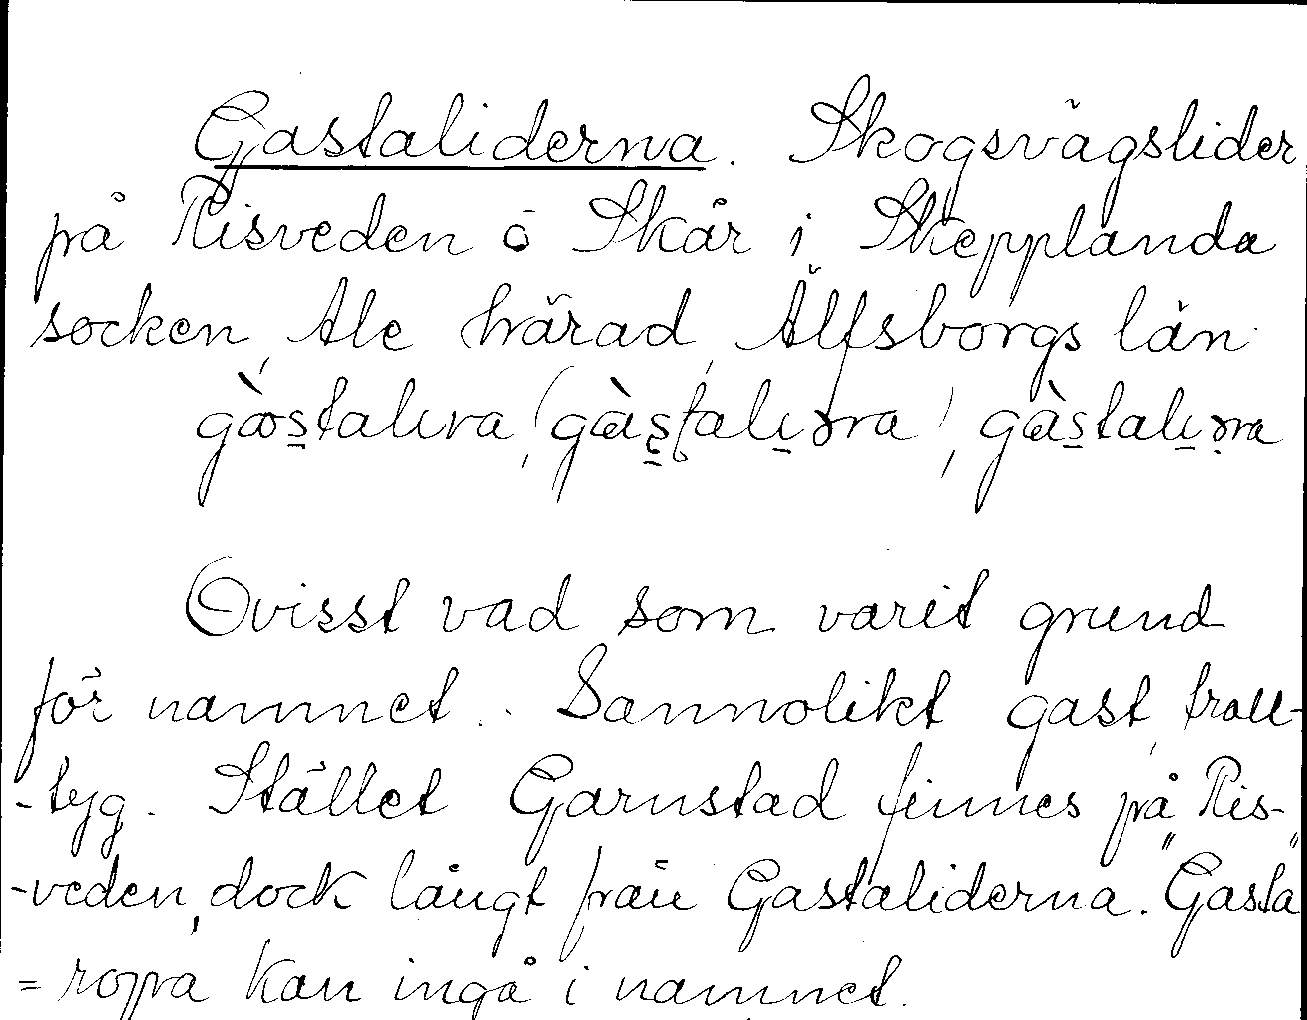 Gastaliderna. Skogsvägslider
på Risveden ö Skår i Skepplanda
socken, Ale härad, Älfsborgs län
gàstalıra, (gàstalıꝛra), gàstalıꝛra
Ovisst vad som varit grund
för namnet. Sannolikt gast, troll-
-tyg. Stället Garnstad finnes på Ris-
-veden, dock långt från Gastaliderna. "Gasta"
=ropra kan ingå i namnet.